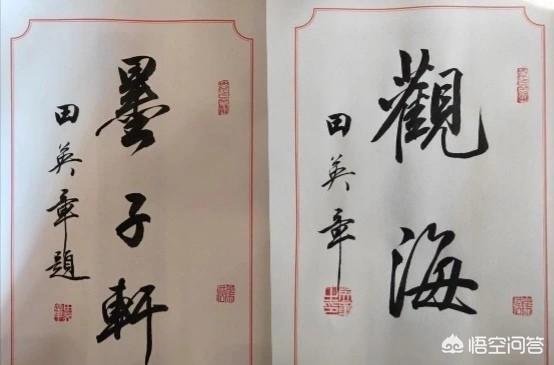 墨子軒
田英章題
觀海
田英章
悟空问答